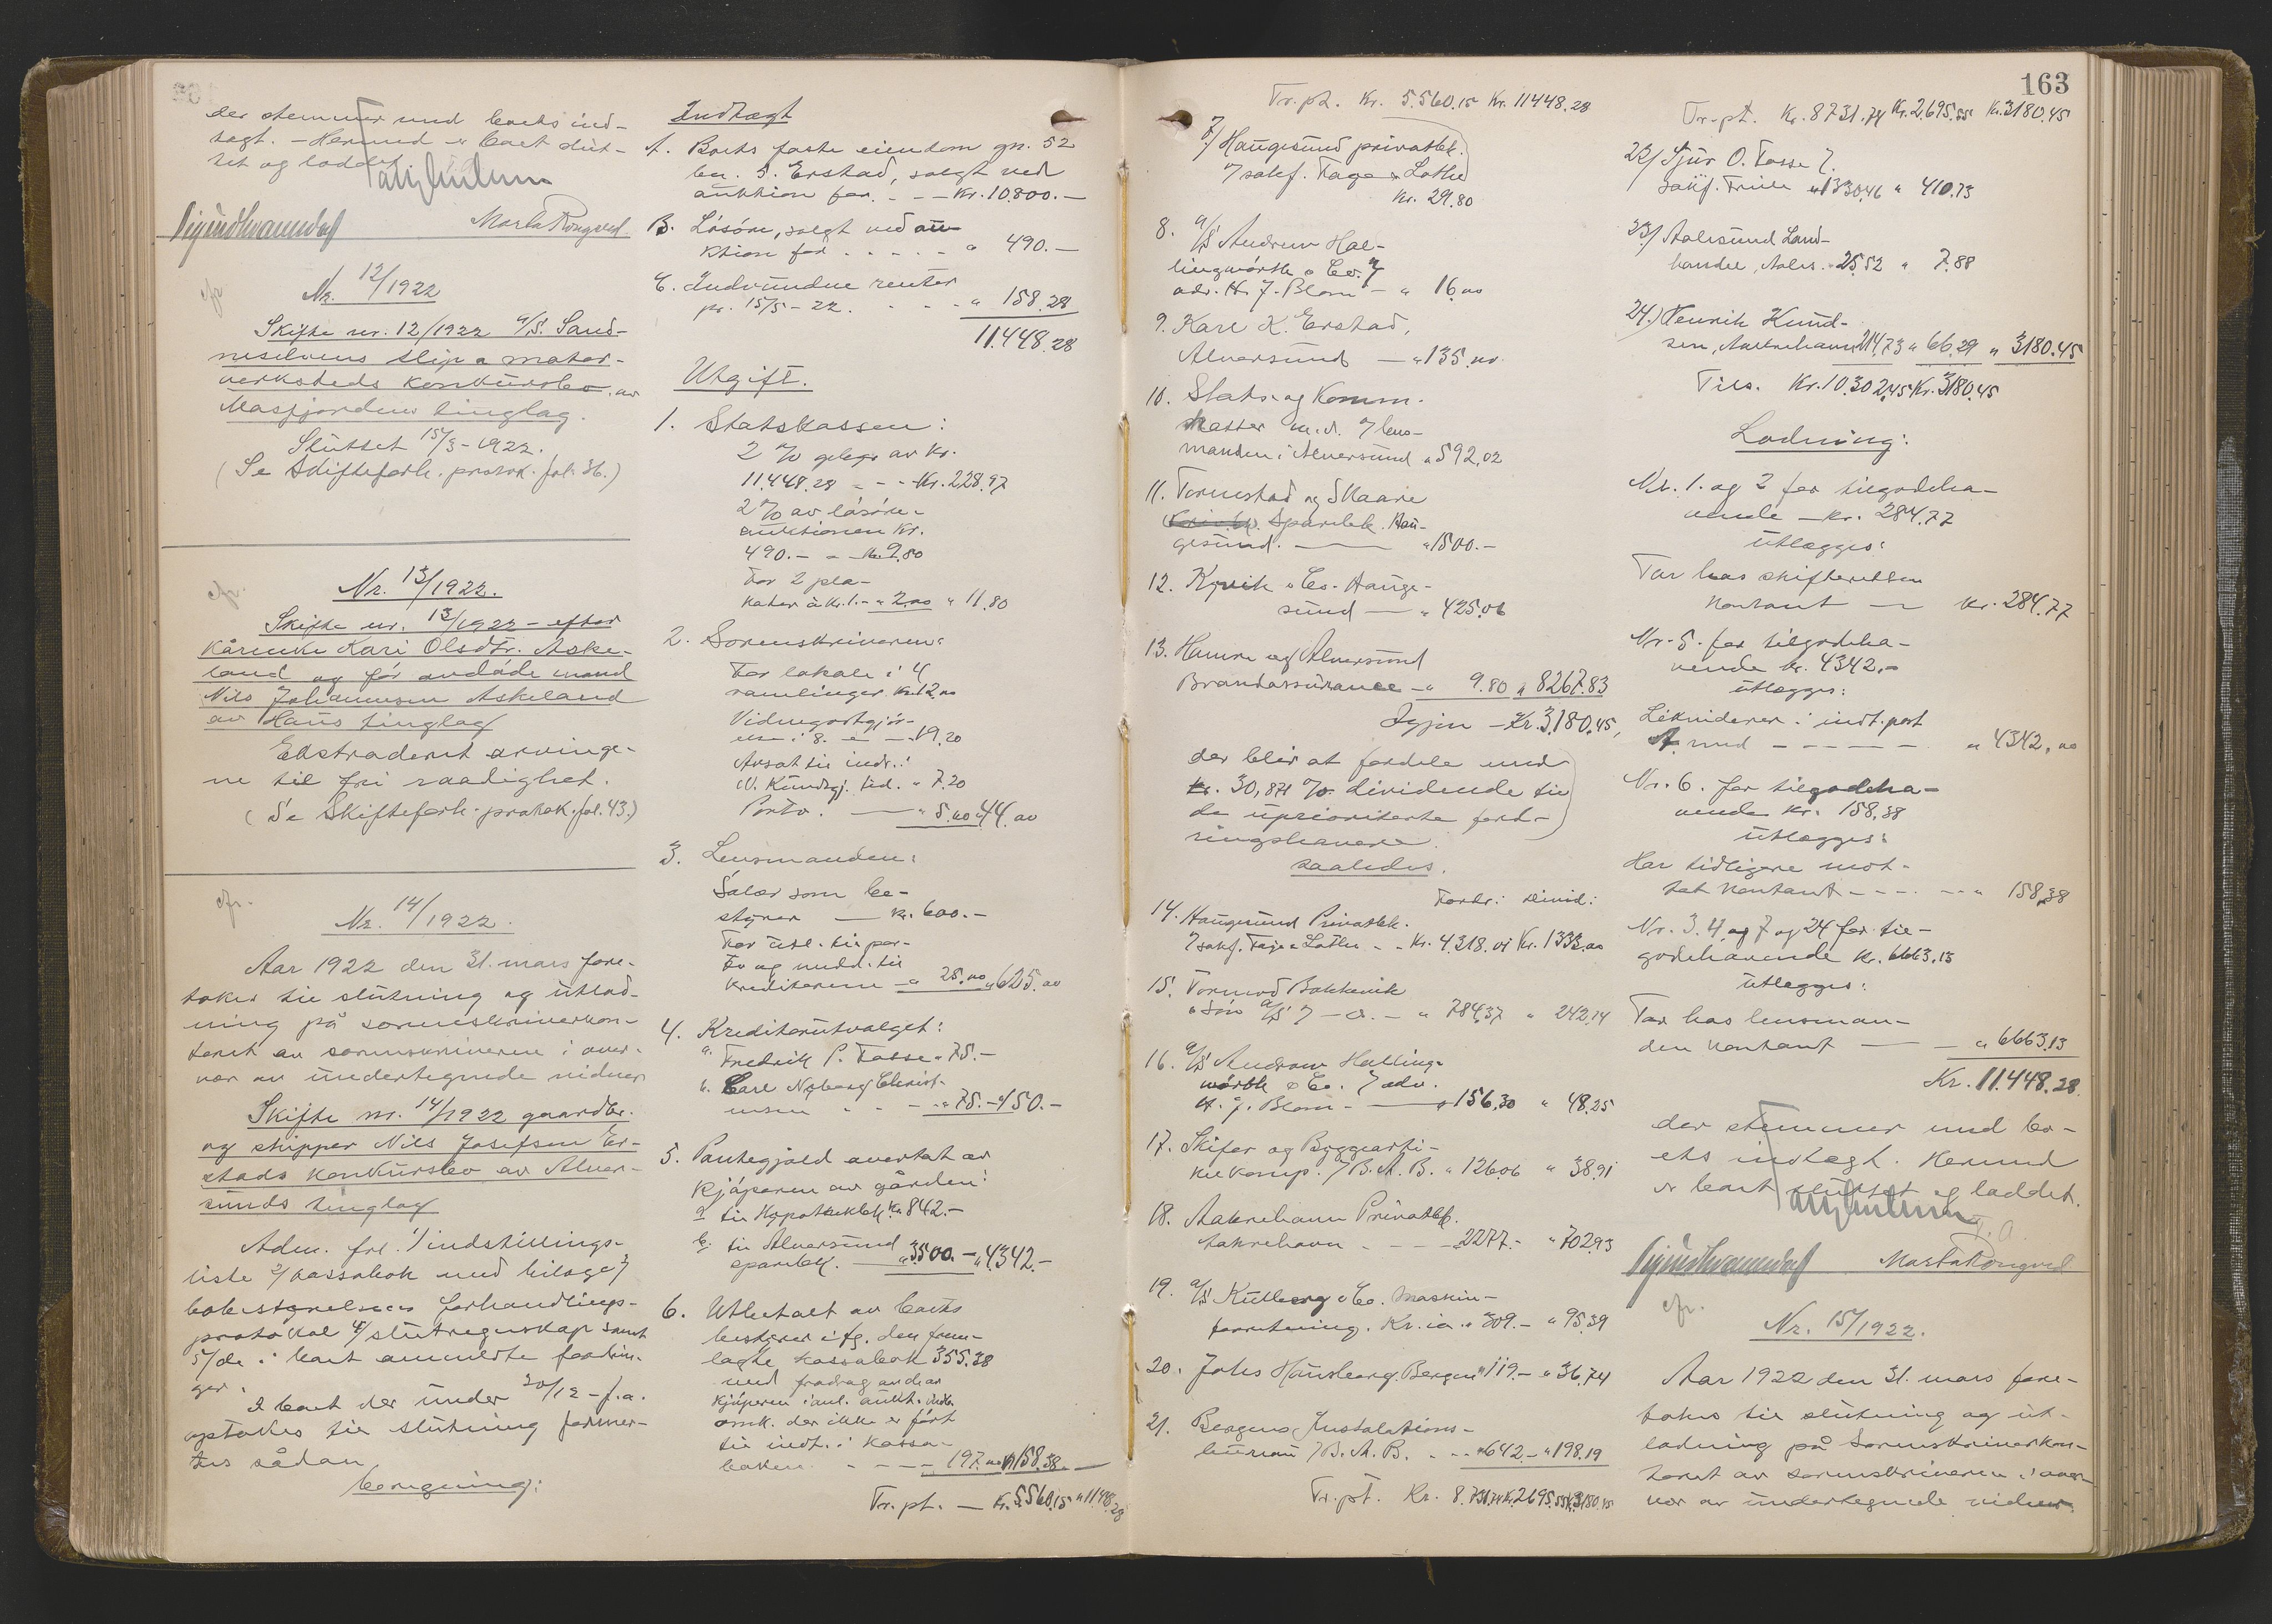 der stemmer med boets ind-
tegt. - Hermed er boet slut-
tet og loddet
Marta Rongved
Nr. 12/1922
Skifte nr. 12/1922 A/S. Sand-
neselvens slip & motor-
verksteds konkursbo av
Masfjordens tinglag.
Sluttet 15/3-1922.
(Se Skifteforh. protok. fol. 36.)
Nr. 13/1922.
Skifte nr. 13/1922 - efter
kårenke Kari Olsdtr. Aske-
land og før avdøde mand
Nils Johannesen Askeland
av Haus tinglag
Ekstradert arvinge-
ne til fri raadighet.
(Se Skifteforh. protok. fol. 43.)
Nr. 14/1922.
Aar 1922 den 31. mars fore-
tokes til slutning og utlod-
ning på sorenskriverkon-
toret av sorenskriveren i over-
vær av undertegnede vidner
Skifte nr. 14/1922 gaardbr.
og skipper Nils Josefsen Er-
stads konkursbo av Alver-
sunds tinglag
Adm. frl. 1/ indstillings-
liste 2/ kassabok med bilage 3/
bobestyrelsens forhandlings-
protokol 4/ slutregnskap samt
5/ de i boet anmeldte fordrin-
ger.
I boet der under 20/12 - f.a.
optokes til slutning former-
tes sådan
beregning:
Indtægt
A. Boets faste eiendom gn. 52
bn. 5. Erstad, solgt ved
auktion for. - - Kr. 10.800.-
B. Løsøre, solgt ved auk-
ktion for . . . . . " 490.-
C. Indvundne renter
pr. 15/5-22. . . - " 158.28
11.448.28
Utgift.
1. Statskassen:
2 % gebyr av kr.
11.448.28 - - - Kr. 228.97
2 % av løsøre-
auktionen kr.
490.- - - kr. 9.80
For 2 pla-
kater à kr. 1.- " 2.00 " 11.80
2. Sorenskriveren:
For lokale i 4
samlinger kr. 12.00
Vidnegodtgjør-
else i 8. - - 19.20
Avsat til indr. i
N. Kundgj. tid. " 7.20
Porto. — " 5.60 44.00
3. Lensmanden:
Salær som be-
styrer — kr. 600.-
For utl. til por-
to og medd. til
kreditorene - " 25.00 " 625.00
4. Kreditorutvalget:
a. Fredrik P. Fosse " 75.-
b. Carl Nyborg Christ-
ensen " - - " 75.- " 150.-
5. Pantegjæld overtat av
kjøperen av gården:
a til Hypotekbk. Kr. 842.-
b. til Alversund
sparebk. — " 3500.- " 4342.-
6. Utbetalt av boets
bestyrer ifg. den frem-
lagte kassabok 355.38
med fradrag av de av
kjøperen i anl. aukt. indb.
omk. der ikke er ført
til indt. i kassa-
boken. - - - 197.00 " 158.38
Tr. pt. — Kr. 5560.15 " 11448.28
163
Tr. pt. Kr. 5.560.15 Kr. 11448.28
7/ Haugesund privatbk.
7 sakf. Fage & Lothe
Kr. 29.80
8. A/S Andrew Hol-
lingworth & Co. 7
adv. H. J. Blom - " 16.00
9. Karl K. Erstad,
Alversund — " 135.00
10. Stats- og Komm.
skatter m.v. 7 lens-
manden i Alversund " 592.02
11. Tormestad og Skaare
Sparebk. Hau-
gesund. — " 1500.-
12. Kyvik & Co. Hauge-
sund — " 425.06
13. Hamre og Alversund
Brandassurance - " 9.80 " 8267.83
Igjen - Kr. 3180.45,
der blir at fordele med
kr. 30,871 % dividende til
de uprioriterte ford-
ringshavere
saaledes.
Fordr: divid:
14. Haugesund Privatbk.
7 sakf. Fage & Lothe - - Kr. 4318.01 Kr. 1333.00
15. Tormod Bakkevik
& Søn A/S 7 - " - " 784.37 " 242.14
16. A/S Andrew Holling-
worth & Co. 7 adv.
H. J. Blom - — " 156.30 " 48.25
17. Skifer og Byggearti-
kel komp. 7 B.A.B. " 126.06 " 38.91
18. Aakrehavn Privatbk.
Aakrehavn - - - 2277.- " 702.93
19. A/S Kulberg & Co. Maskin-
forretning. Kr.ia. " 309.- " 95.39
20. Johs Hausberg. Bergen " 119.- " 36.74
21. Bergens Instalations-
bureau 7 B.A.B. - - " 642.- " 198.19
Tr. pt. Kr. 8.731.74 Kr. 2695.55 Kr. 3180.45
Tr. pt. Kr. 8731.74 Kr. 2.695.55 Kr. 3180.45
22/ Sjur O. Fosse 7.
sakf. Friile " 1330.46 " 410.73
23/ Aalesund Land-
handel, Aales. - 25.52 " 7.88
24.) Henrik Knud-
sen, Aakrehavn 214.73 " 66.29 " 3180.45
Tils. Kr. 10.302.45 Kr. 3180.45
Lodning:
Nr. 1. og 2 for tilgodeha-
vende - kr. 284.77
utlægges:
Tar hos skifteretten
kontant — kr. 284.77
Nr. 5. for tilgodeha-
vende kr. 4342.-
utlægges:
Likviderer i indt. post
A med - - - - - " 4342.00
Nr. 6. for tilgodeha-
vende kr. 158.38
utlægges:
Har tidligere mot-
tat kontant - - - - - " 158.38
Nr. 3. 4 og 7 og 24 for til-
godehavende kr. 6663.13
utlægges:
Tar hos lensman-
den kontant — " 6663.13
Kr. 11.448.28.
der stemmer med bo-
ets indtægt. Hermed
er boet sluttet og loddet.
Marta Rongved
Nr. 15/1922.
Aar 1922 den 31. mars fore-
tokes til slutning og ut-
lodning på Sorenskriverkon-
toret av sorenskriveren i over-
vær av undertegnede vidner.